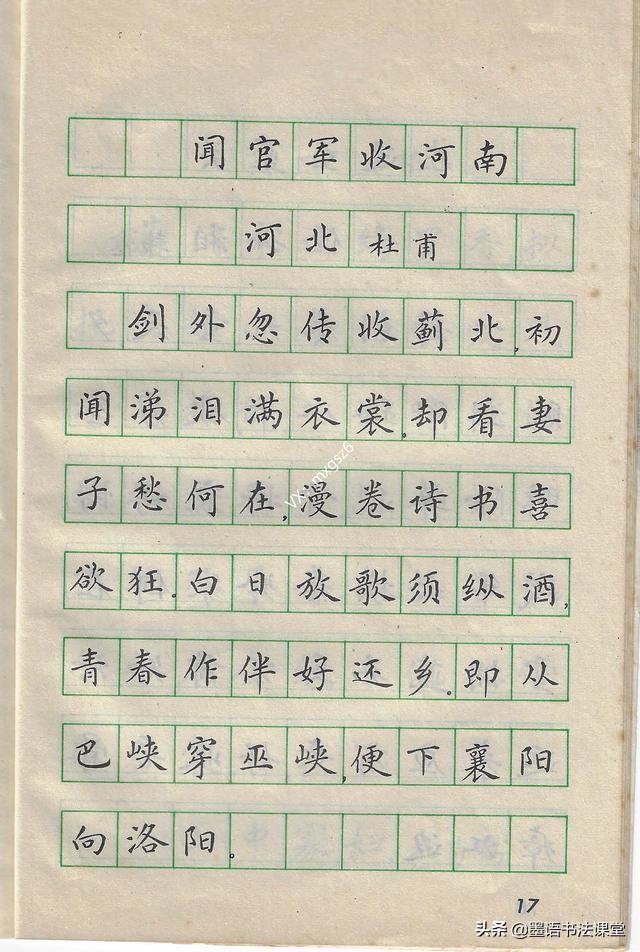 闻官军收河南
河北 杜甫
剑外忽传收蓟北,初
闻涕泪满衣裳。却看妻
子愁何在,漫卷诗书喜
欲狂。白日放歌须纵酒,
青春作伴好还乡。即从
巴峡穿巫峡,便下襄阳
向洛阳。
17
头条@墨语书法课堂